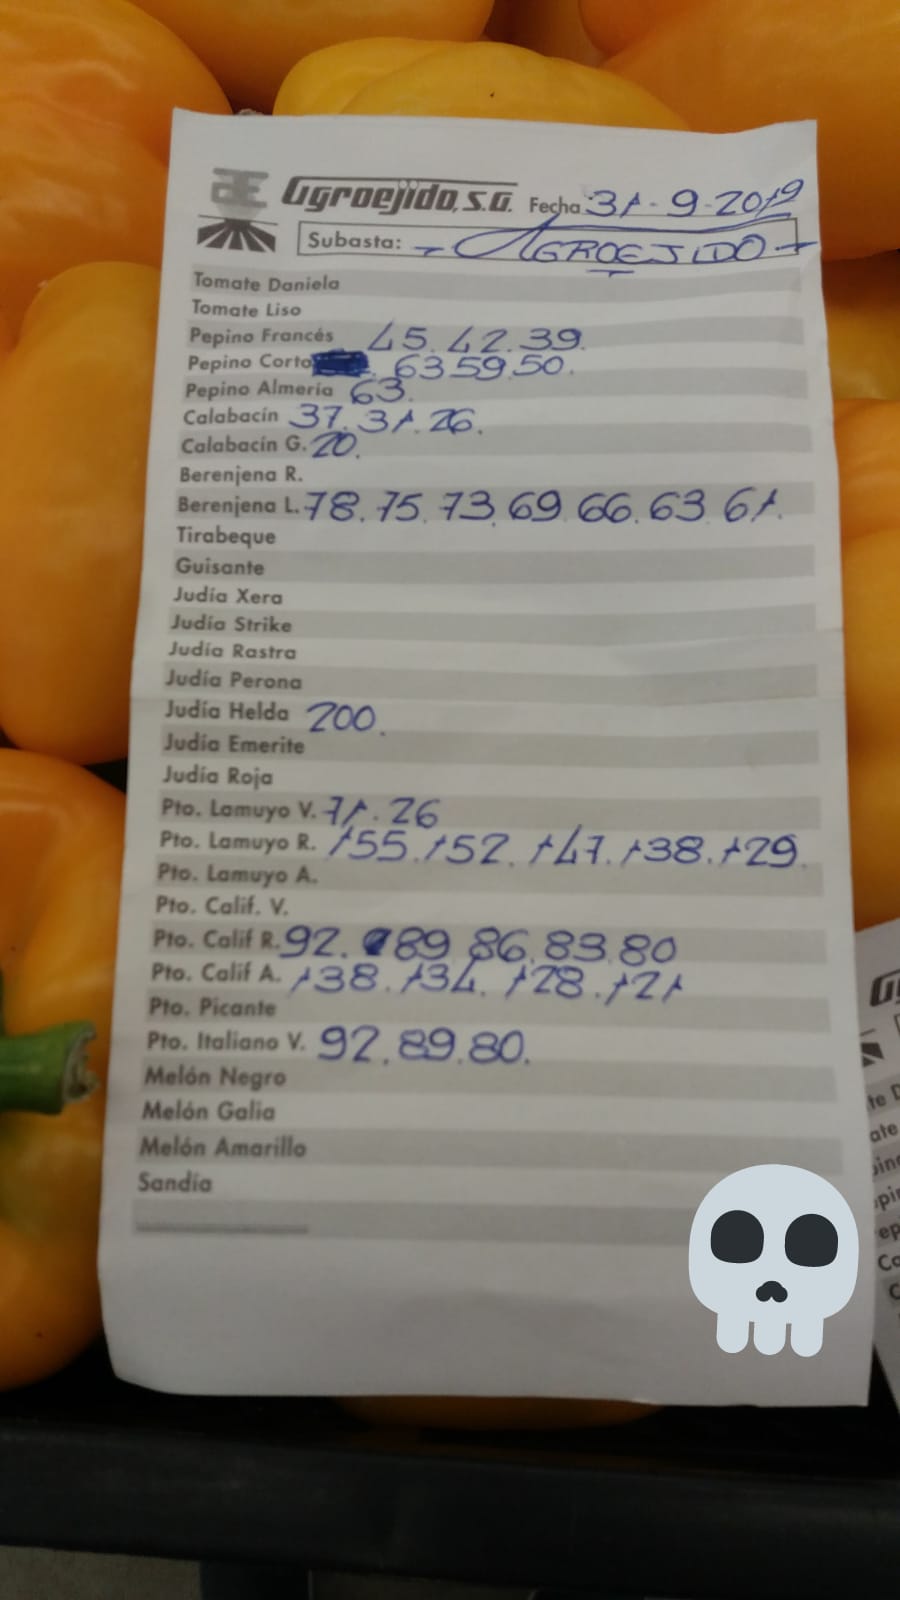 Agroejido, S.A. Fecha 31-9-2019
Subasta: - AGROEJIDO -
Tomate Daniela
Tomate Liso
Pepino Francés 45.42.39.
Pepino Corto 63 59.50.
Pepino Almería 63.
Calabacín 37.31.26.
Calabacín G. 20.
Berenjena R.
Berenjena L. 78.75.73.69.66.63 61.
Tirabeque
Guisante
Judía Xera
Judía Strike
Judía Rastra
Judía Perona
Judía Helda 200.
Judía Emerite
Judía Roja
Pto. Lamuyo V. 71.26
Pto. Lamuyo R. 155.152.147.138.129.
Pto. Lamuyo A.
Pto. Calif. V.
Pto. Calif R. 92. 89 86.83.80
Pto. Calif A. 138.134.128.121
Pto. Picante
Pto. Italiano V. 92.89.80.
Melón Negro
Melón Galia
Melón Amarillo
Sandía